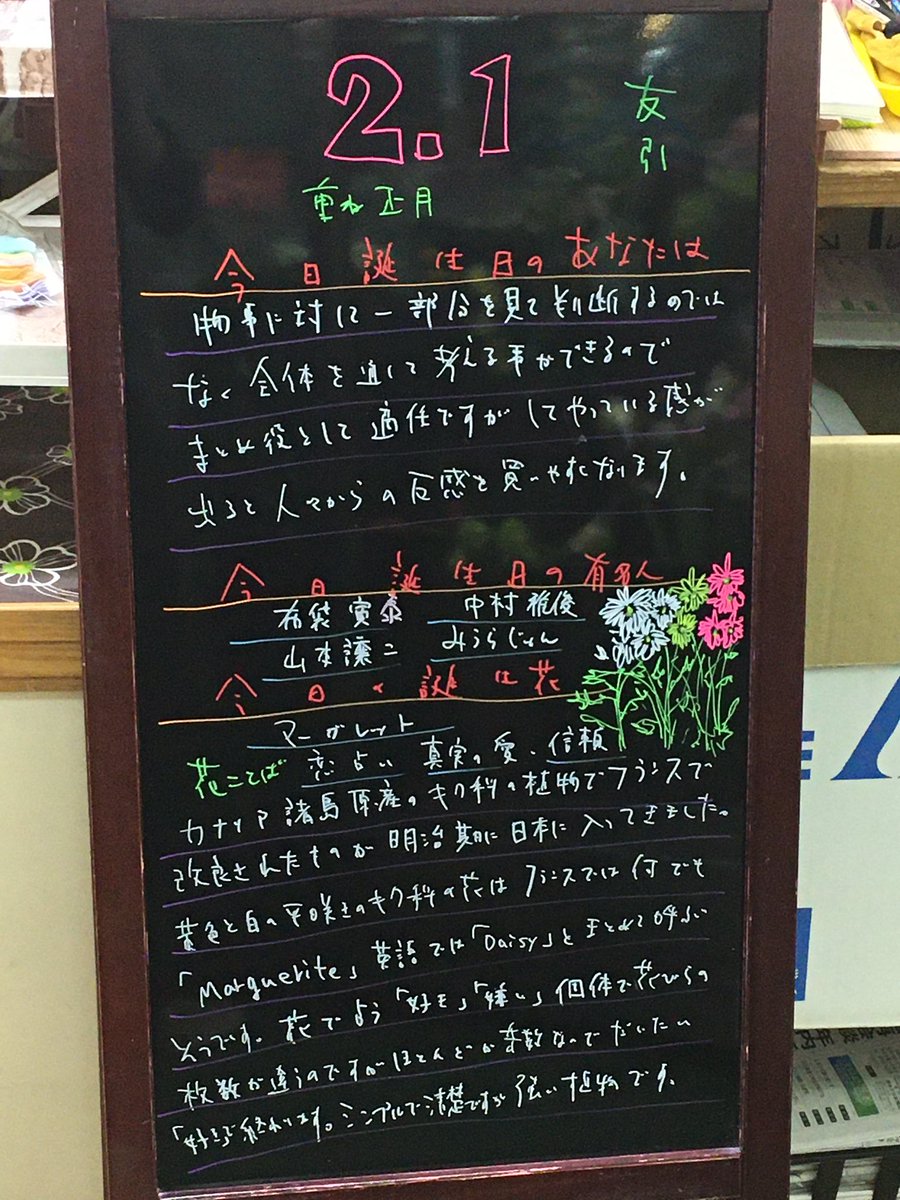 2.1
友引
重ね正月
今日誕生日のあなたは
物事に対して一部分を見て判断するのでは
なく全体を通して考える事ができるので
まとめ役として適任ですがしてやっている感が
出ると人々からの反感を買いやすくなります。
今日誕生日の有名人
布袋寅泰 中村雅俊
山本譲二 みうらじゅん
今日の誕生花
マーガレット
花ことば 恋占い 真実の愛、信頼
カナリア諸島原産のキク科の植物でフランスで
改良されたものが明治期に日本に入ってきました。
黄色と白の平咲きのキク科の花はフランスでは何でも
「Marguerite」英語では「Daisy」とまとめて呼ぶ
そうです。花でよう「好き」「嫌い」個体で花びらの
枚数が違うのですがほとんどが奇数なのでだいたい
「好き」で終わります。シンプルで清楚ですが強い植物です。